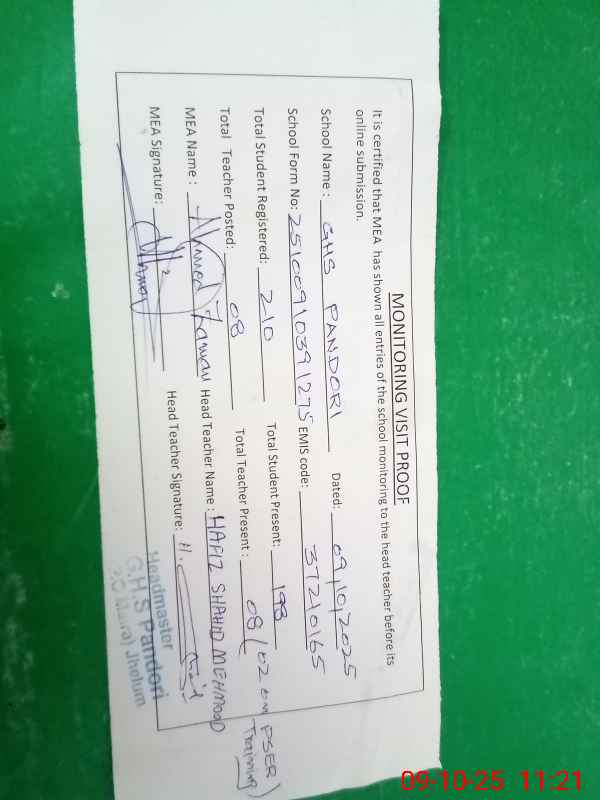 MONITORING VISIT PROOF
It is certified that MEA has shown all entries of the school monitoring to the head teacher before its
online submission.
School Name : GHS PANDORI Dated: 09/10/2025
School Form No: 2510091039 1275 EMIS code: 37210165
Total Student Registered: 210 Total Student Present: 198
Total Teacher Posted: 08 Total Teacher Present : 08/02 on PSER Training)
MEA Name : Ahmed Zaman Head Teacher Name : HAFIZ SHAHID MEHMOOD
MEA Signature: Head Teacher Signature:
Headmaster
G.H.S Pandori
Jhelum
09-10-25 11:21